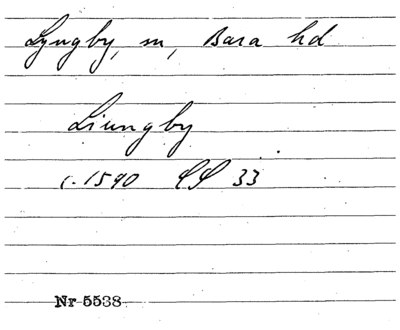 Lyngby, sn, Bara hd
Liungby
c. 1590 LL 33
Nr 5538